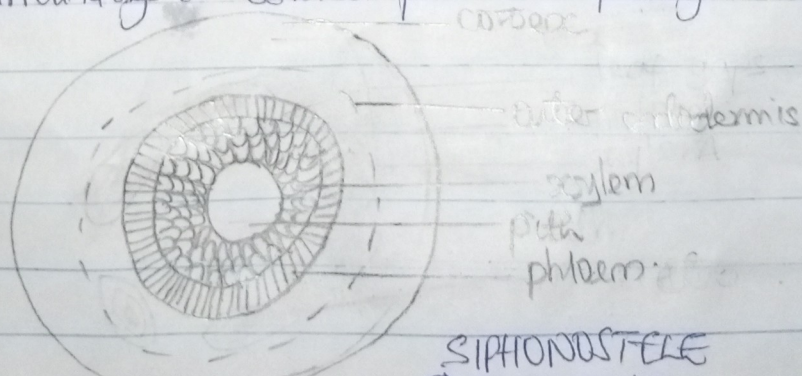 cortex
outer endodermis
xylem
pith
phloem.
SIPHONOSTELE